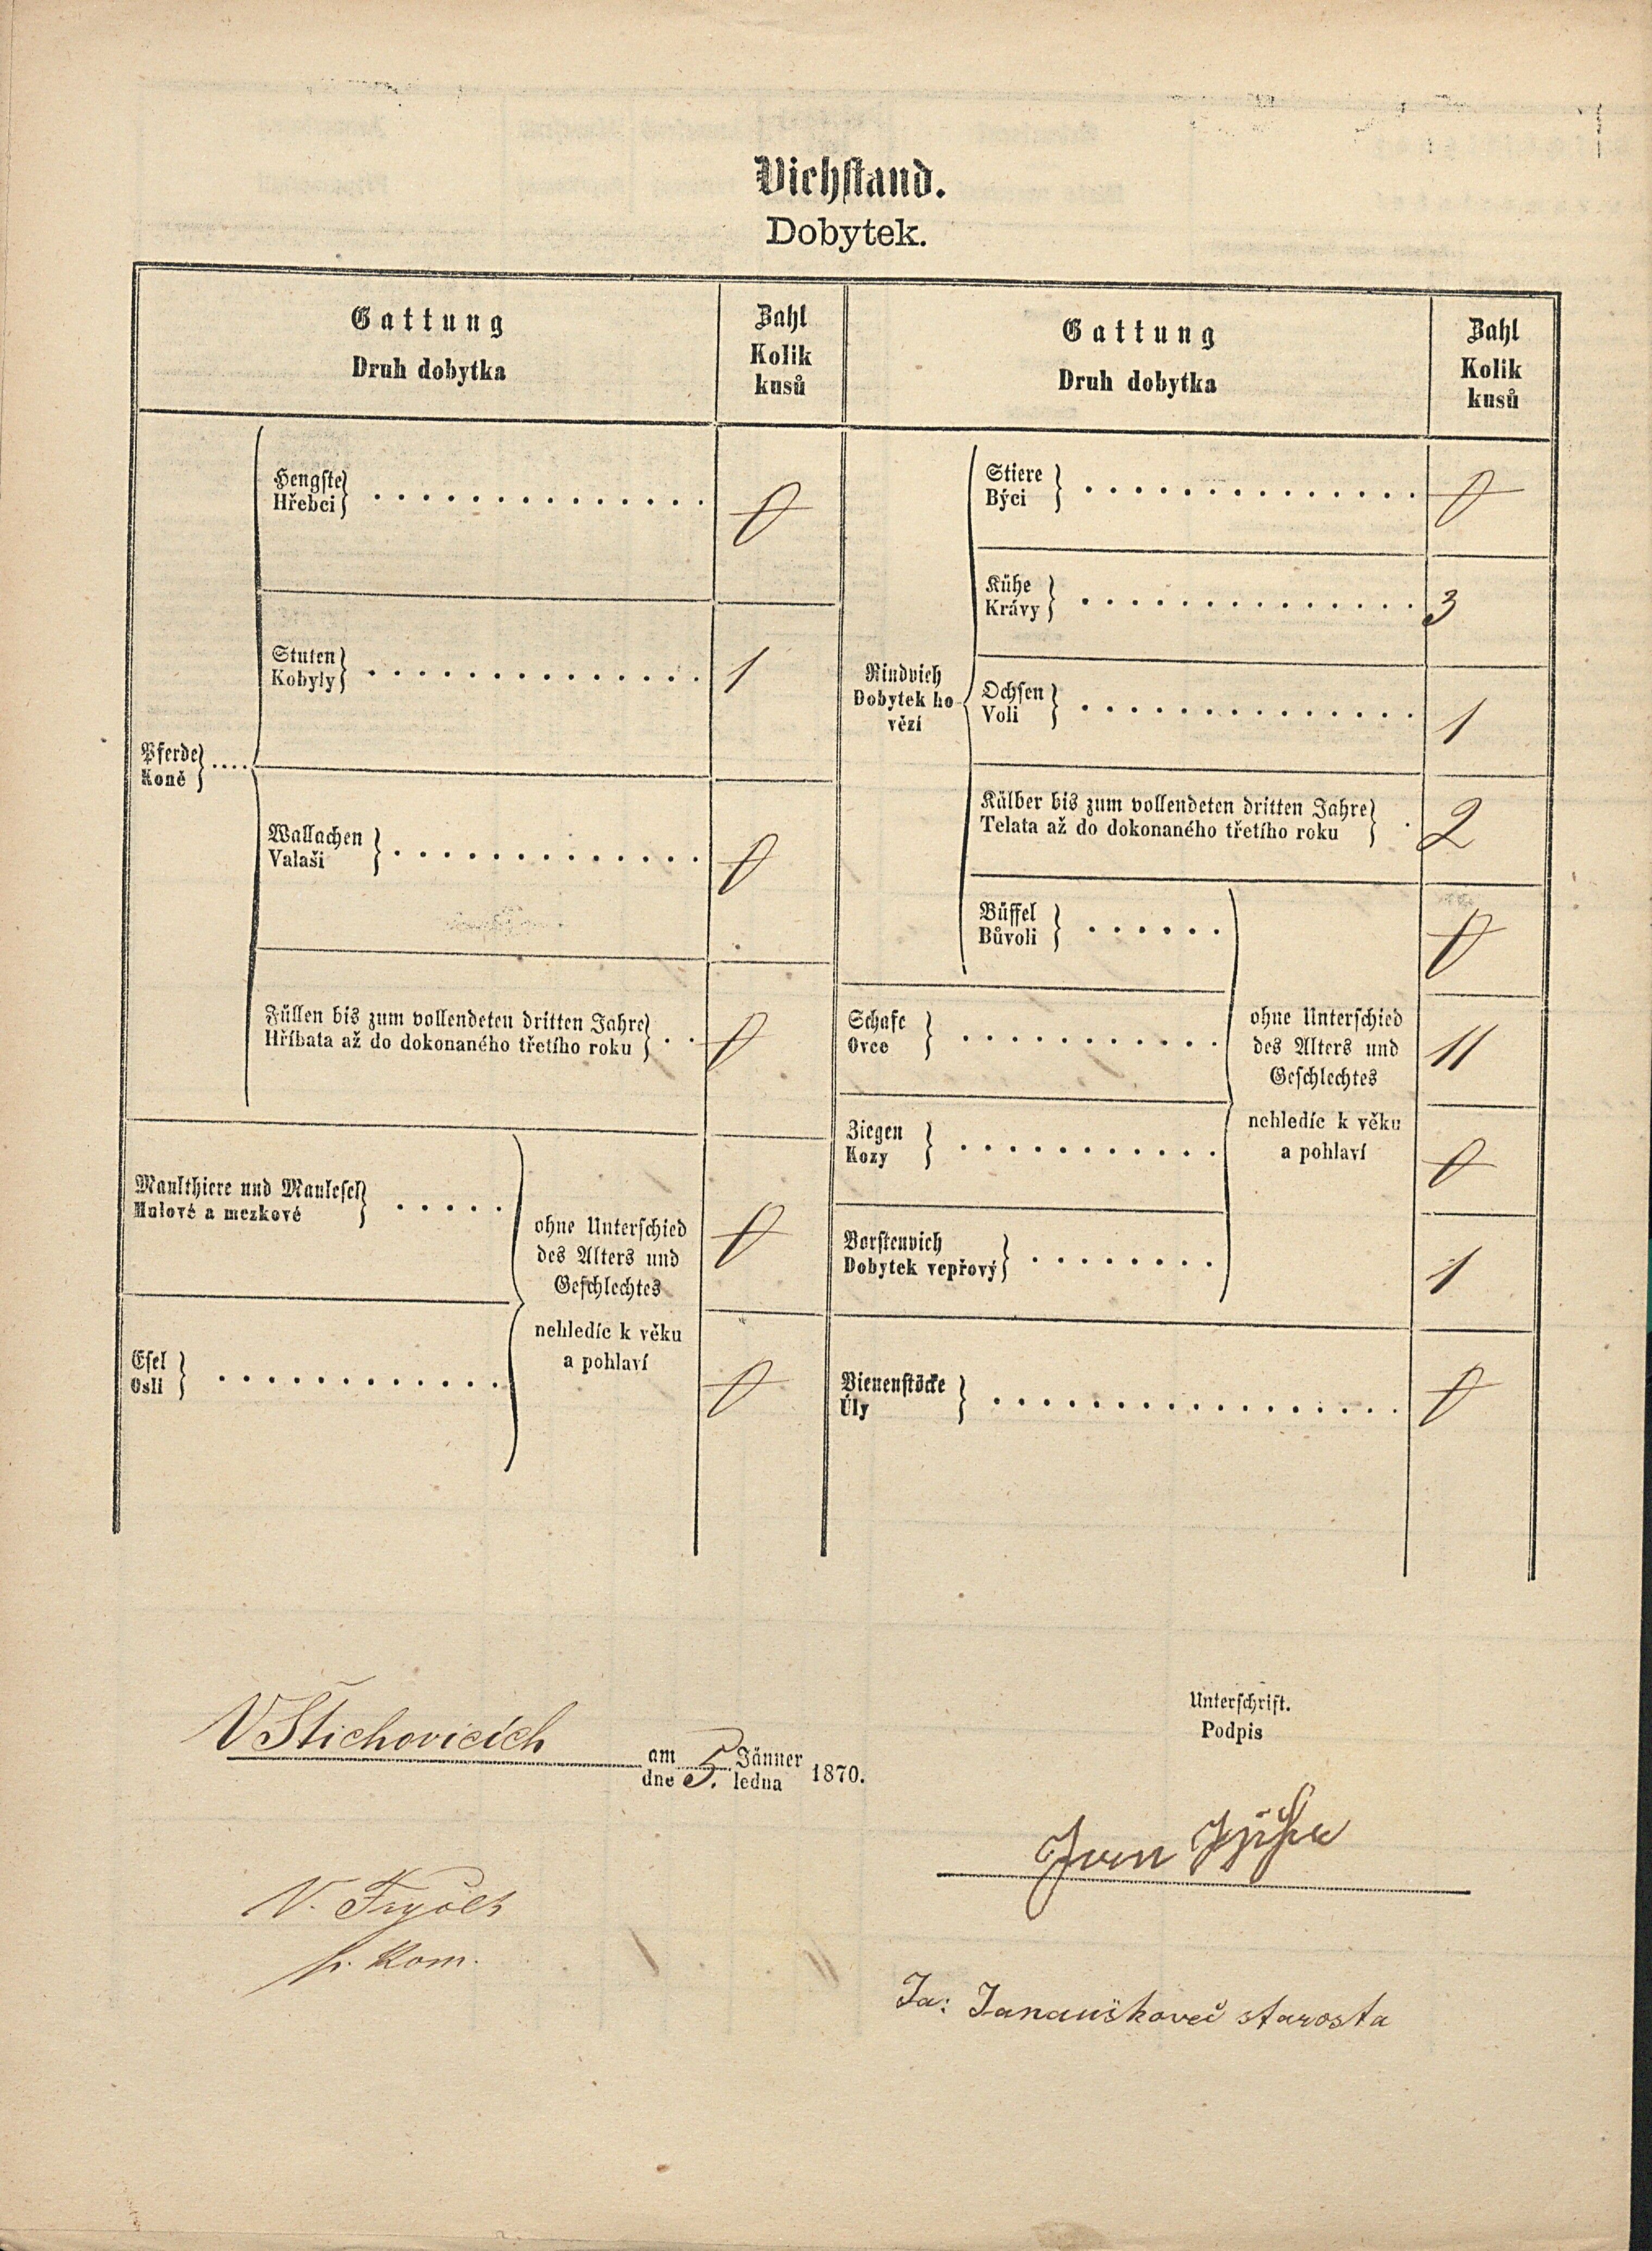 Viehstand.
Dobytek.
Gattung
Druh dobytka
Zahl
Kolik
kusů
Gattung
Druh dobytka
Zahl
Kolik
kusů
Pferde
Koně
Hengste
Hřebci
0
Stuten
Kobyly
1
Wallachen
Valaši
0
Füllen bis zum vollendeten dritten Jahre
Hříbata až do dokonaného třetího roku
0
Maulthiere und Maulesel
Mulové a mezkové
0
Esel
Osli
0
ohne Unterschied
des Alters und
Geschlechtes
nehledíc k věku
a pohlaví
Rindvieh
Dobytek ho-
vězí
Stiere
Býci
0
Kühe
Krávy
3
Ochsen
Voli
1
Kälber bis zum vollendeten dritten Jahre
Telata až do dokonaného třetího roku
2
Büffel
Bůvoli
0
Schafe
Ovce
11
Ziegen
Kozy
0
Borstenvieh
Dobytek vepřový
1
ohne Unterschied
des Alters und
Geschlechtes
nehledíc k věku
a pohlaví
Bienenstöcke
Úly
0
V Štichovicích
am 5. Jänner 1870.
dne ledna
Unterschrift.
Podpis
Jan
V.
Kom.
Ja: Janouškovec starosta